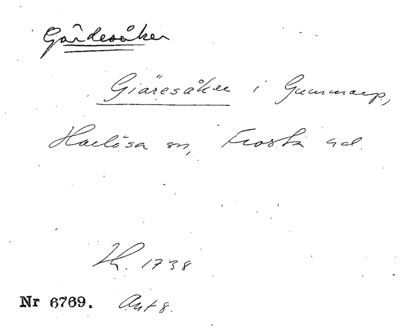 Gärdesåker
Giäresåker i Gummarp,
Harlösa sn, Frosta hd.
Th. 1738
Nr 6769. Ant 8.